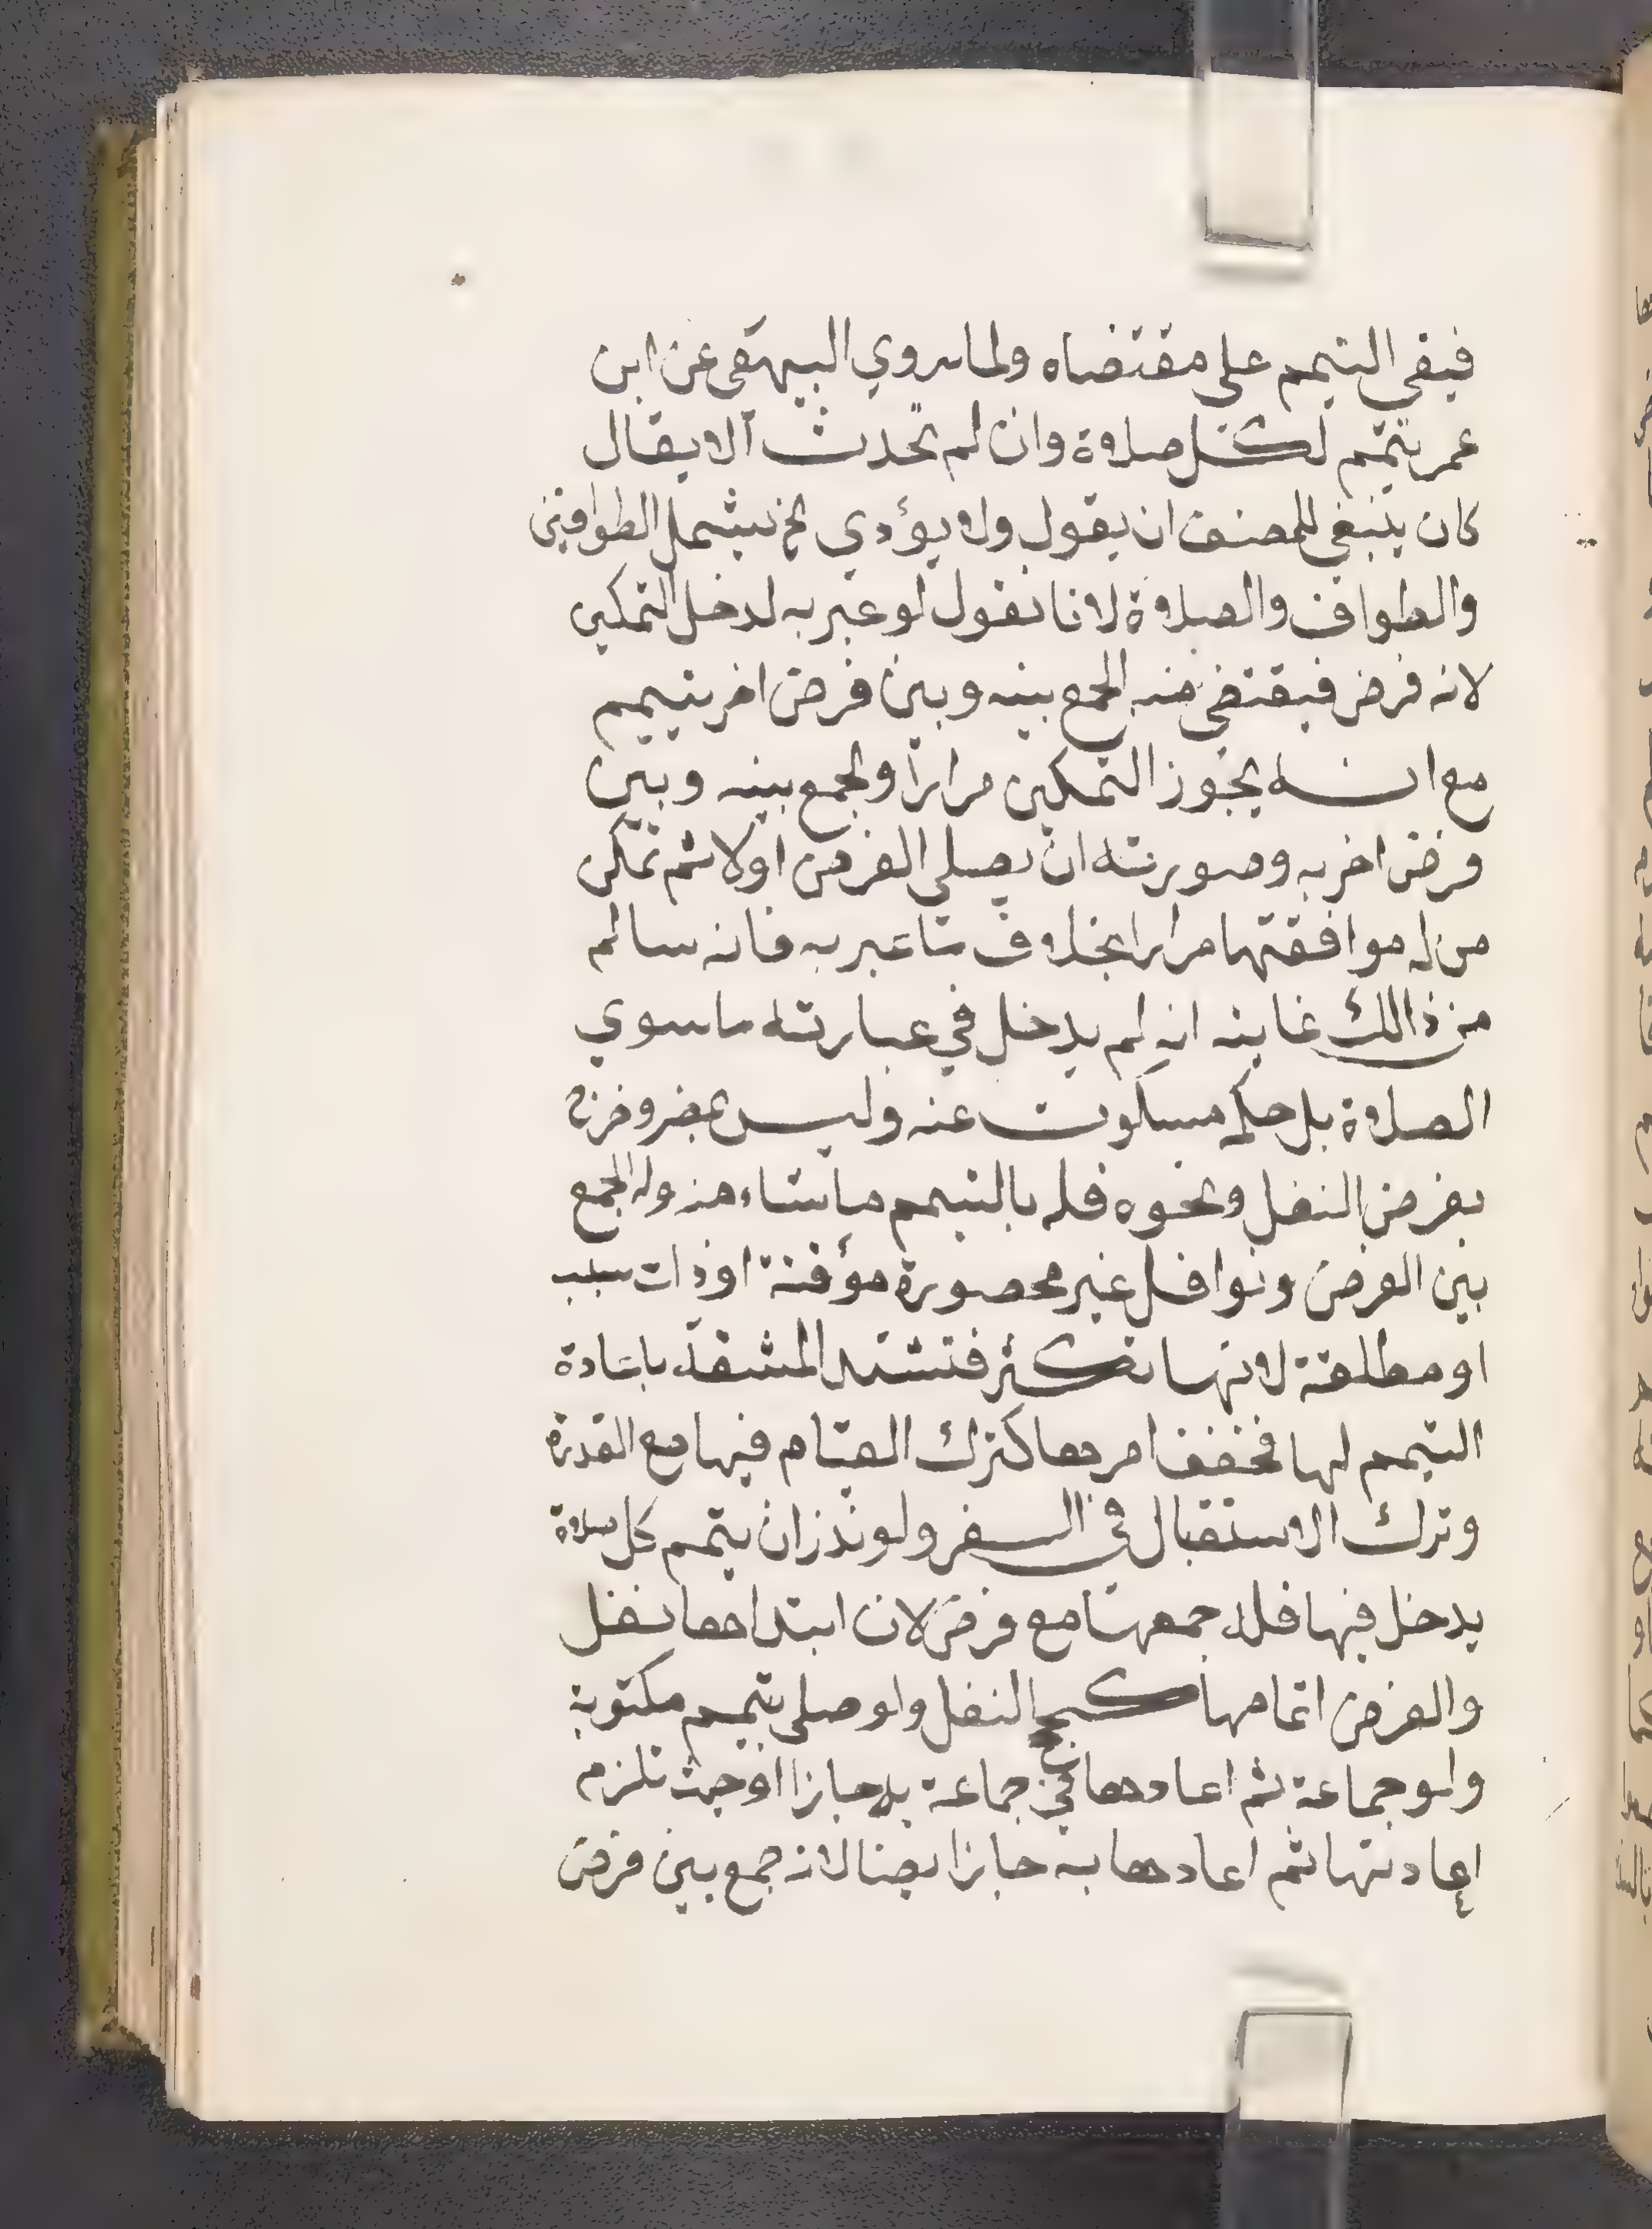 فيقي التيمم على مقتضاه ولما روي البيهقي عن ابن
عمر يتيمم لكل صلاة وان لم يحدث الا يقال
كان ينبغي للمصنف ان يقول ولا يؤدي الخ ليشمل الطوافين
والطواف والصلاة لانا نقول لو عبر به لدخل التمكين
لانه فرض فيقتضي منه الجمع بينه وبين فرض اخر بتيمم
مع انه يجوز التمكين مرارا والجمع بينه وبين
فرض اخر به وصورته ان يصلي الفرض اولا ثم تمكن
من له موافقتها مرارا بخلاف ما عبر به فانه سالم
من ذالك غايته انه لم يدخل في عبارته ما سوي
الصلاة بل حكمه مسكوت عنه وليس بمضر وخرج
بفرض النفل ونحوه فله بالتيمم ما شاء منه وله الجمع
بين الفرض ونوافل غير محصورة مؤقتة اوذات سبب
او مطلقة لانها تكثر فتشتد المشقة باعادة
التيمم لها فخفف امرها كترك القيام فيها مع القدرة
وترك الاستقبال في السفر ولو نذر ان يتمم كل صلاة
يدخل فيها فله جمعها مع فرض لان ابتداها نفل
والفرض اتمامها كحج النفل ولو صلى بتيمم مكتوبة
ولو جماعة ثم اعادها في جماعة به جاز او حيث تلزم
اعادتها ثم اعادها به جاز ايضا لانه جمع بين فرض